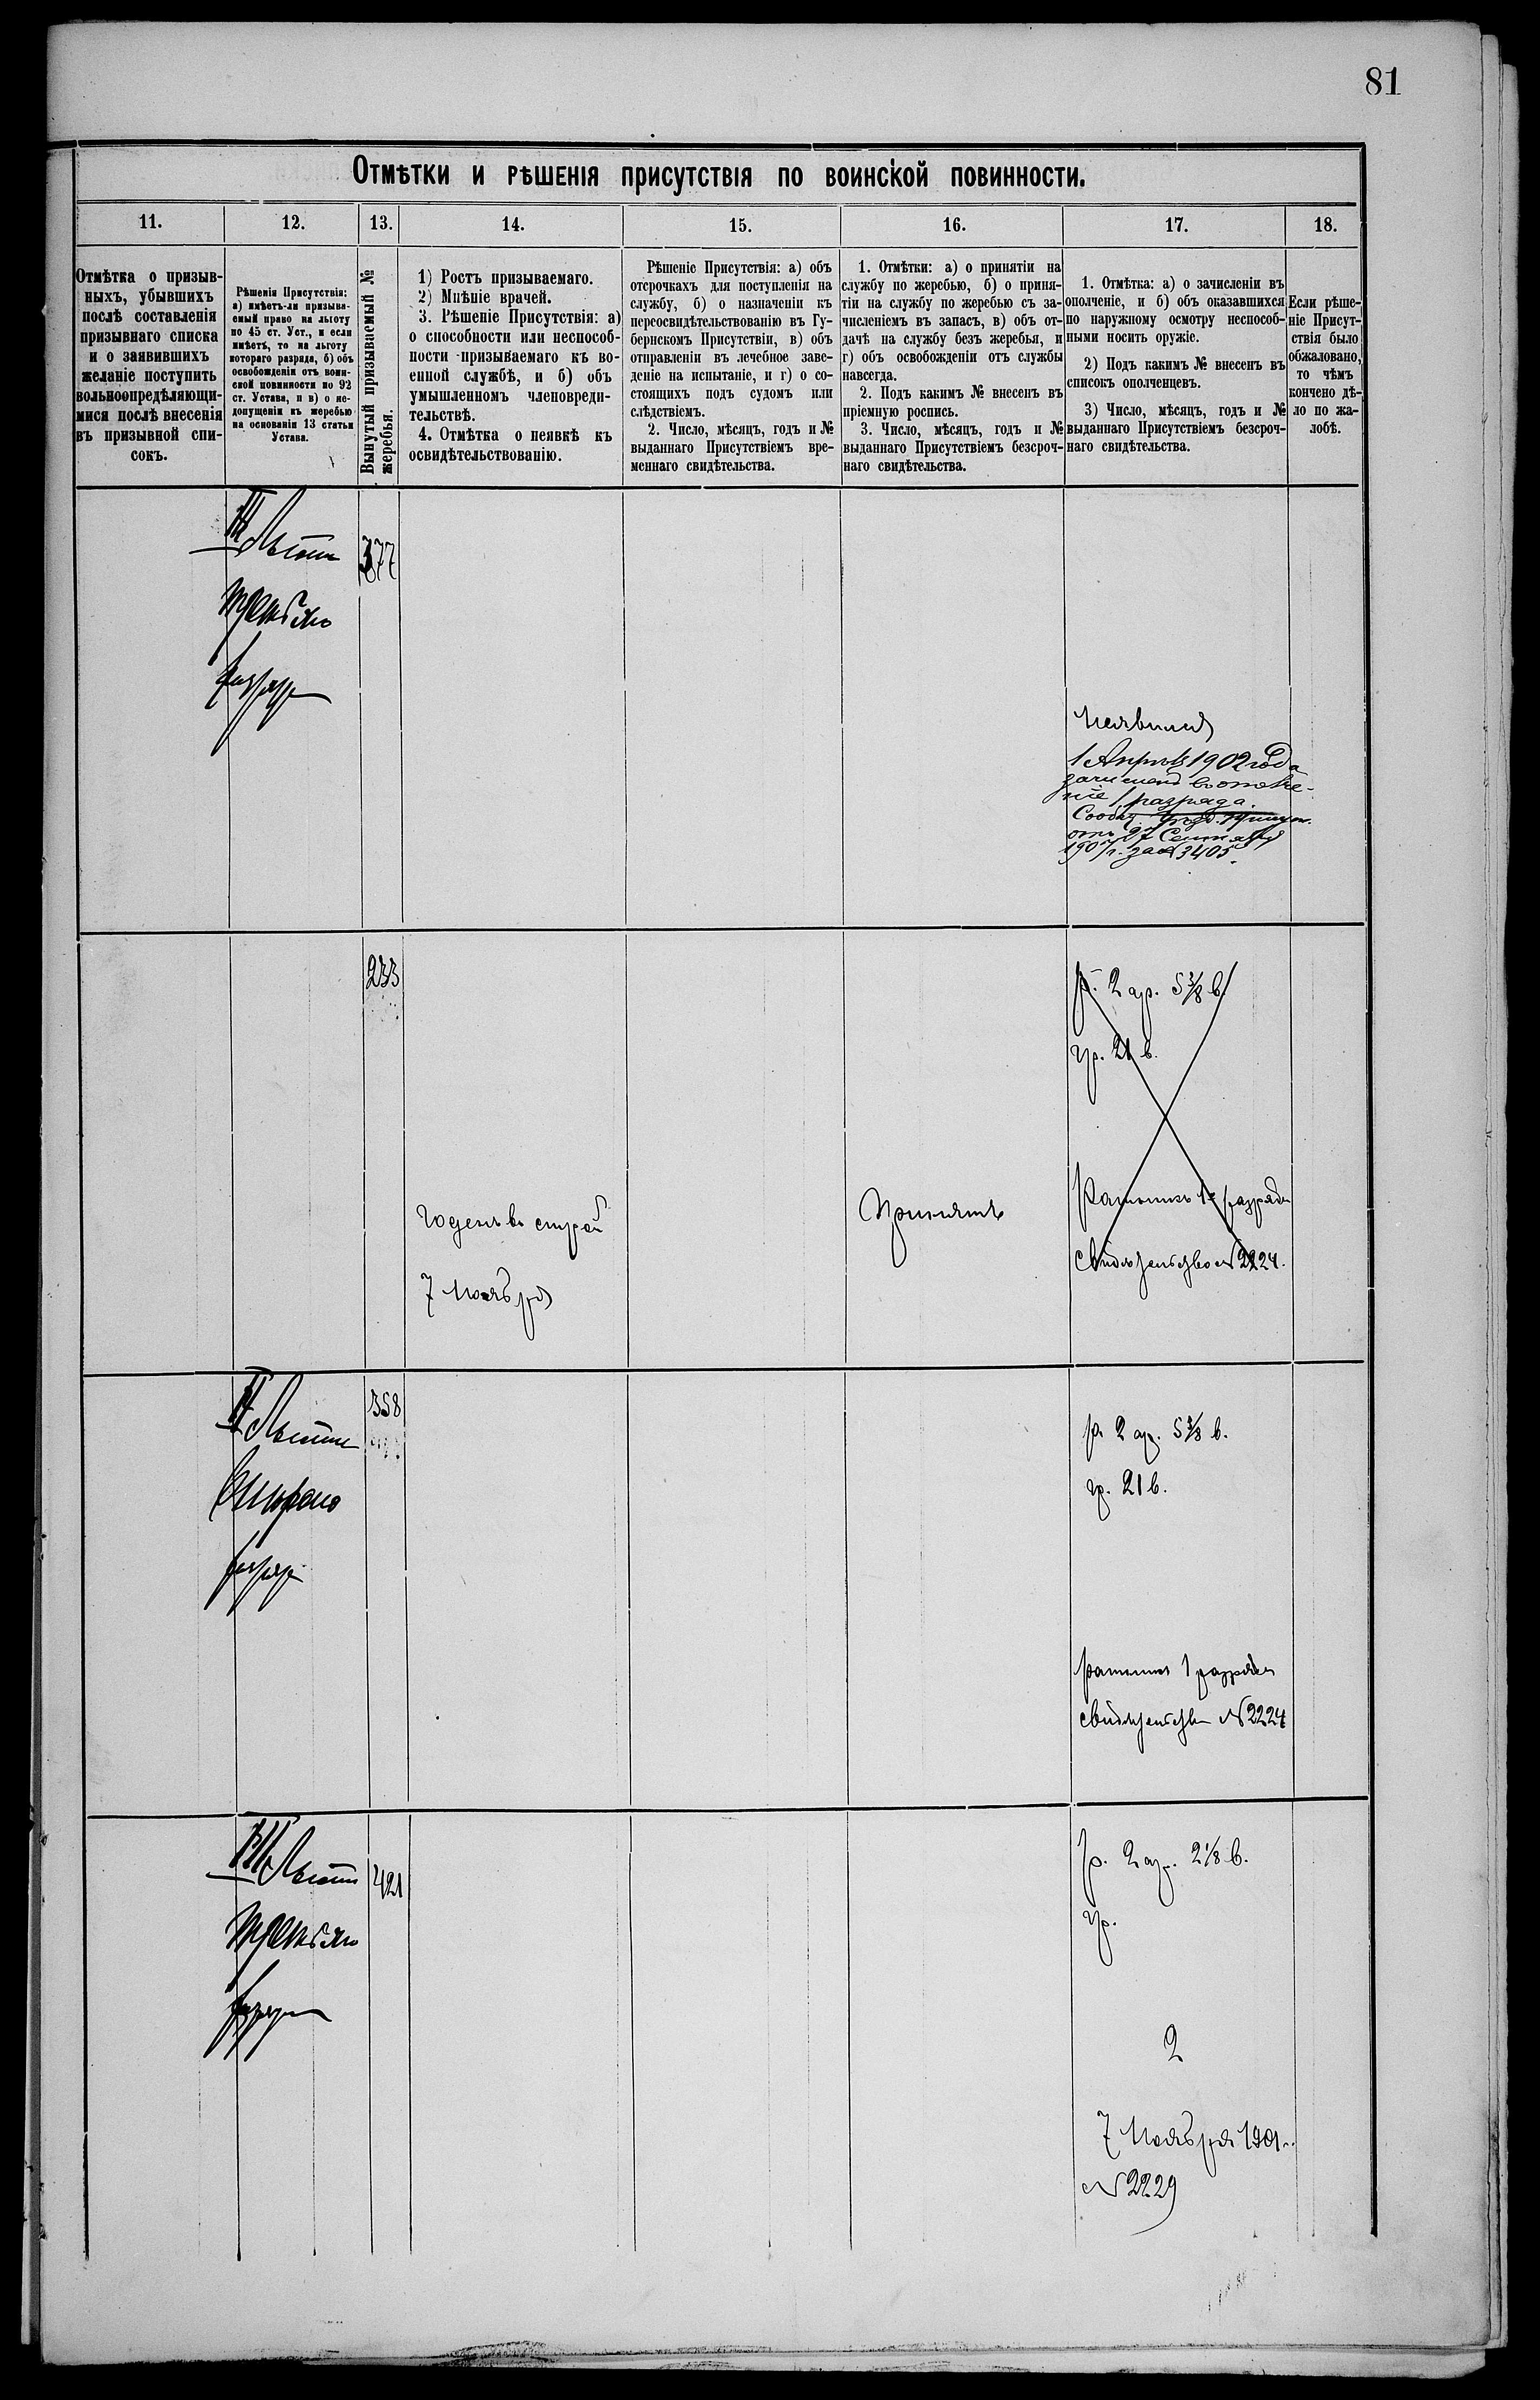 81
Отмѣтки и рѣшенія присутствія по воинской повинности.
11.
12.
13.
14.
15.
16.
17.
18.
Отмѣтка о призыв-
ныхъ, убывшихъ
послѣ составленія
призывнаго списка
и о заявившихъ
желаніе поступить
вольноопредѣляющи-
мися послѣ внесенія
въ призывной спи-
сокъ.
Рѣшенія Присутствія:
а) имѣетъ-ли призывае-
емый право на льготу
по 45 ст. Уст., и если
имѣетъ, то на льготу
котораго разряда, б) объ
освобожденіи отъ воин-
ской повинности по 92
ст. Устава, и в) о не-
допущеніи къ жеребью
на основаніи 13 статьи
Устава.
Вынутый призываемый №
жеребья.
1) Ростъ призываемаго.
2) Мнѣніе врачей.
3. Рѣшеніе Присутствія: а)
о способности или неспособ-
ности призываемаго къ во-
енной службѣ, и б) объ
умышленномъ членовреди-
тельствѣ.
4. Отмѣтка о неявкѣ къ
освидѣтельствованію.
Рѣшеніе Присутствія: а) объ
отсрочкахъ для поступленія на
службу, б) о назначеніи къ
переосвидѣтельствованію въ Гу-
бернскомъ Присутствіи, в) объ
отправленіи въ лечебное заве-
деніе на испытаніе, и г) о со-
стоящихъ подъ судомъ или
слѣдствіемъ.
2. Число, мѣсяцъ, годъ и №
выданнаго Присутствіемъ вре-
меннаго свидѣтельства.
1. Отмѣтки: а) о принятіи на
службу по жеребью, б) о приня-
тіи на службу по жеребью съ за-
численіемъ въ запасъ, в) объ от-
дачѣ на службу безъ жеребья, и
г) объ освобожденіи отъ службы
навсегда.
2. Подъ какимъ № внесенъ въ
пріемную роспись.
3. Число, мѣсяцъ, годъ и №
выданнаго Присутствіемъ безсроч-
наго свидѣтельства.
1. Отмѣтка: а) о зачисленіи въ
ополченіе, и б) объ оказавшихся
по наружному осмотру неспособ-
ными носить оружіе.
2) Подъ какимъ № внесенъ въ
списокъ ополченцевъ.
3) Число, мѣсяцъ, годъ и №
выданнаго Присутствіемъ безсроч-
наго свидѣтельства.
Если рѣше-
ніе Присут-
ствія было
обжаловано,
то чѣмъ
кончено дѣ-
ло по жа-
лобѣ.
III Льгота
третьяго
разряда
377
Неявился
1 Апрѣля 1902 года
зачисленъ въ ополче-
ніе 1 разряда.
отъ 27 Сентября
за № 3405.
233
годенъ въ строй
7 Ноября
Принятъ
р. 2 ар. 5 3/8 в.
гр. 21 в.
Ратникъ 1го разряда
свидѣтельство № 2224.
II Льгота
Второго
разряда
358
р. 2 ар. 5 3/8 в.
гр. 21 в.
ратникъ 1 разряда
свидѣтельство № 2224
III Льгота
третьяго
разряда
421
р. 2 ар. 2 1/8 в.
гр.
2
7 Ноября 1901 г.
№ 2229